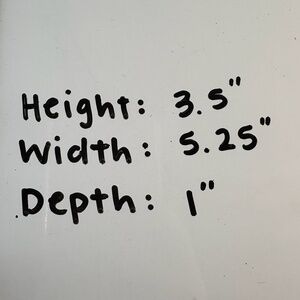 Height: 3.5"
Width: 5.25"
Depth: 1"